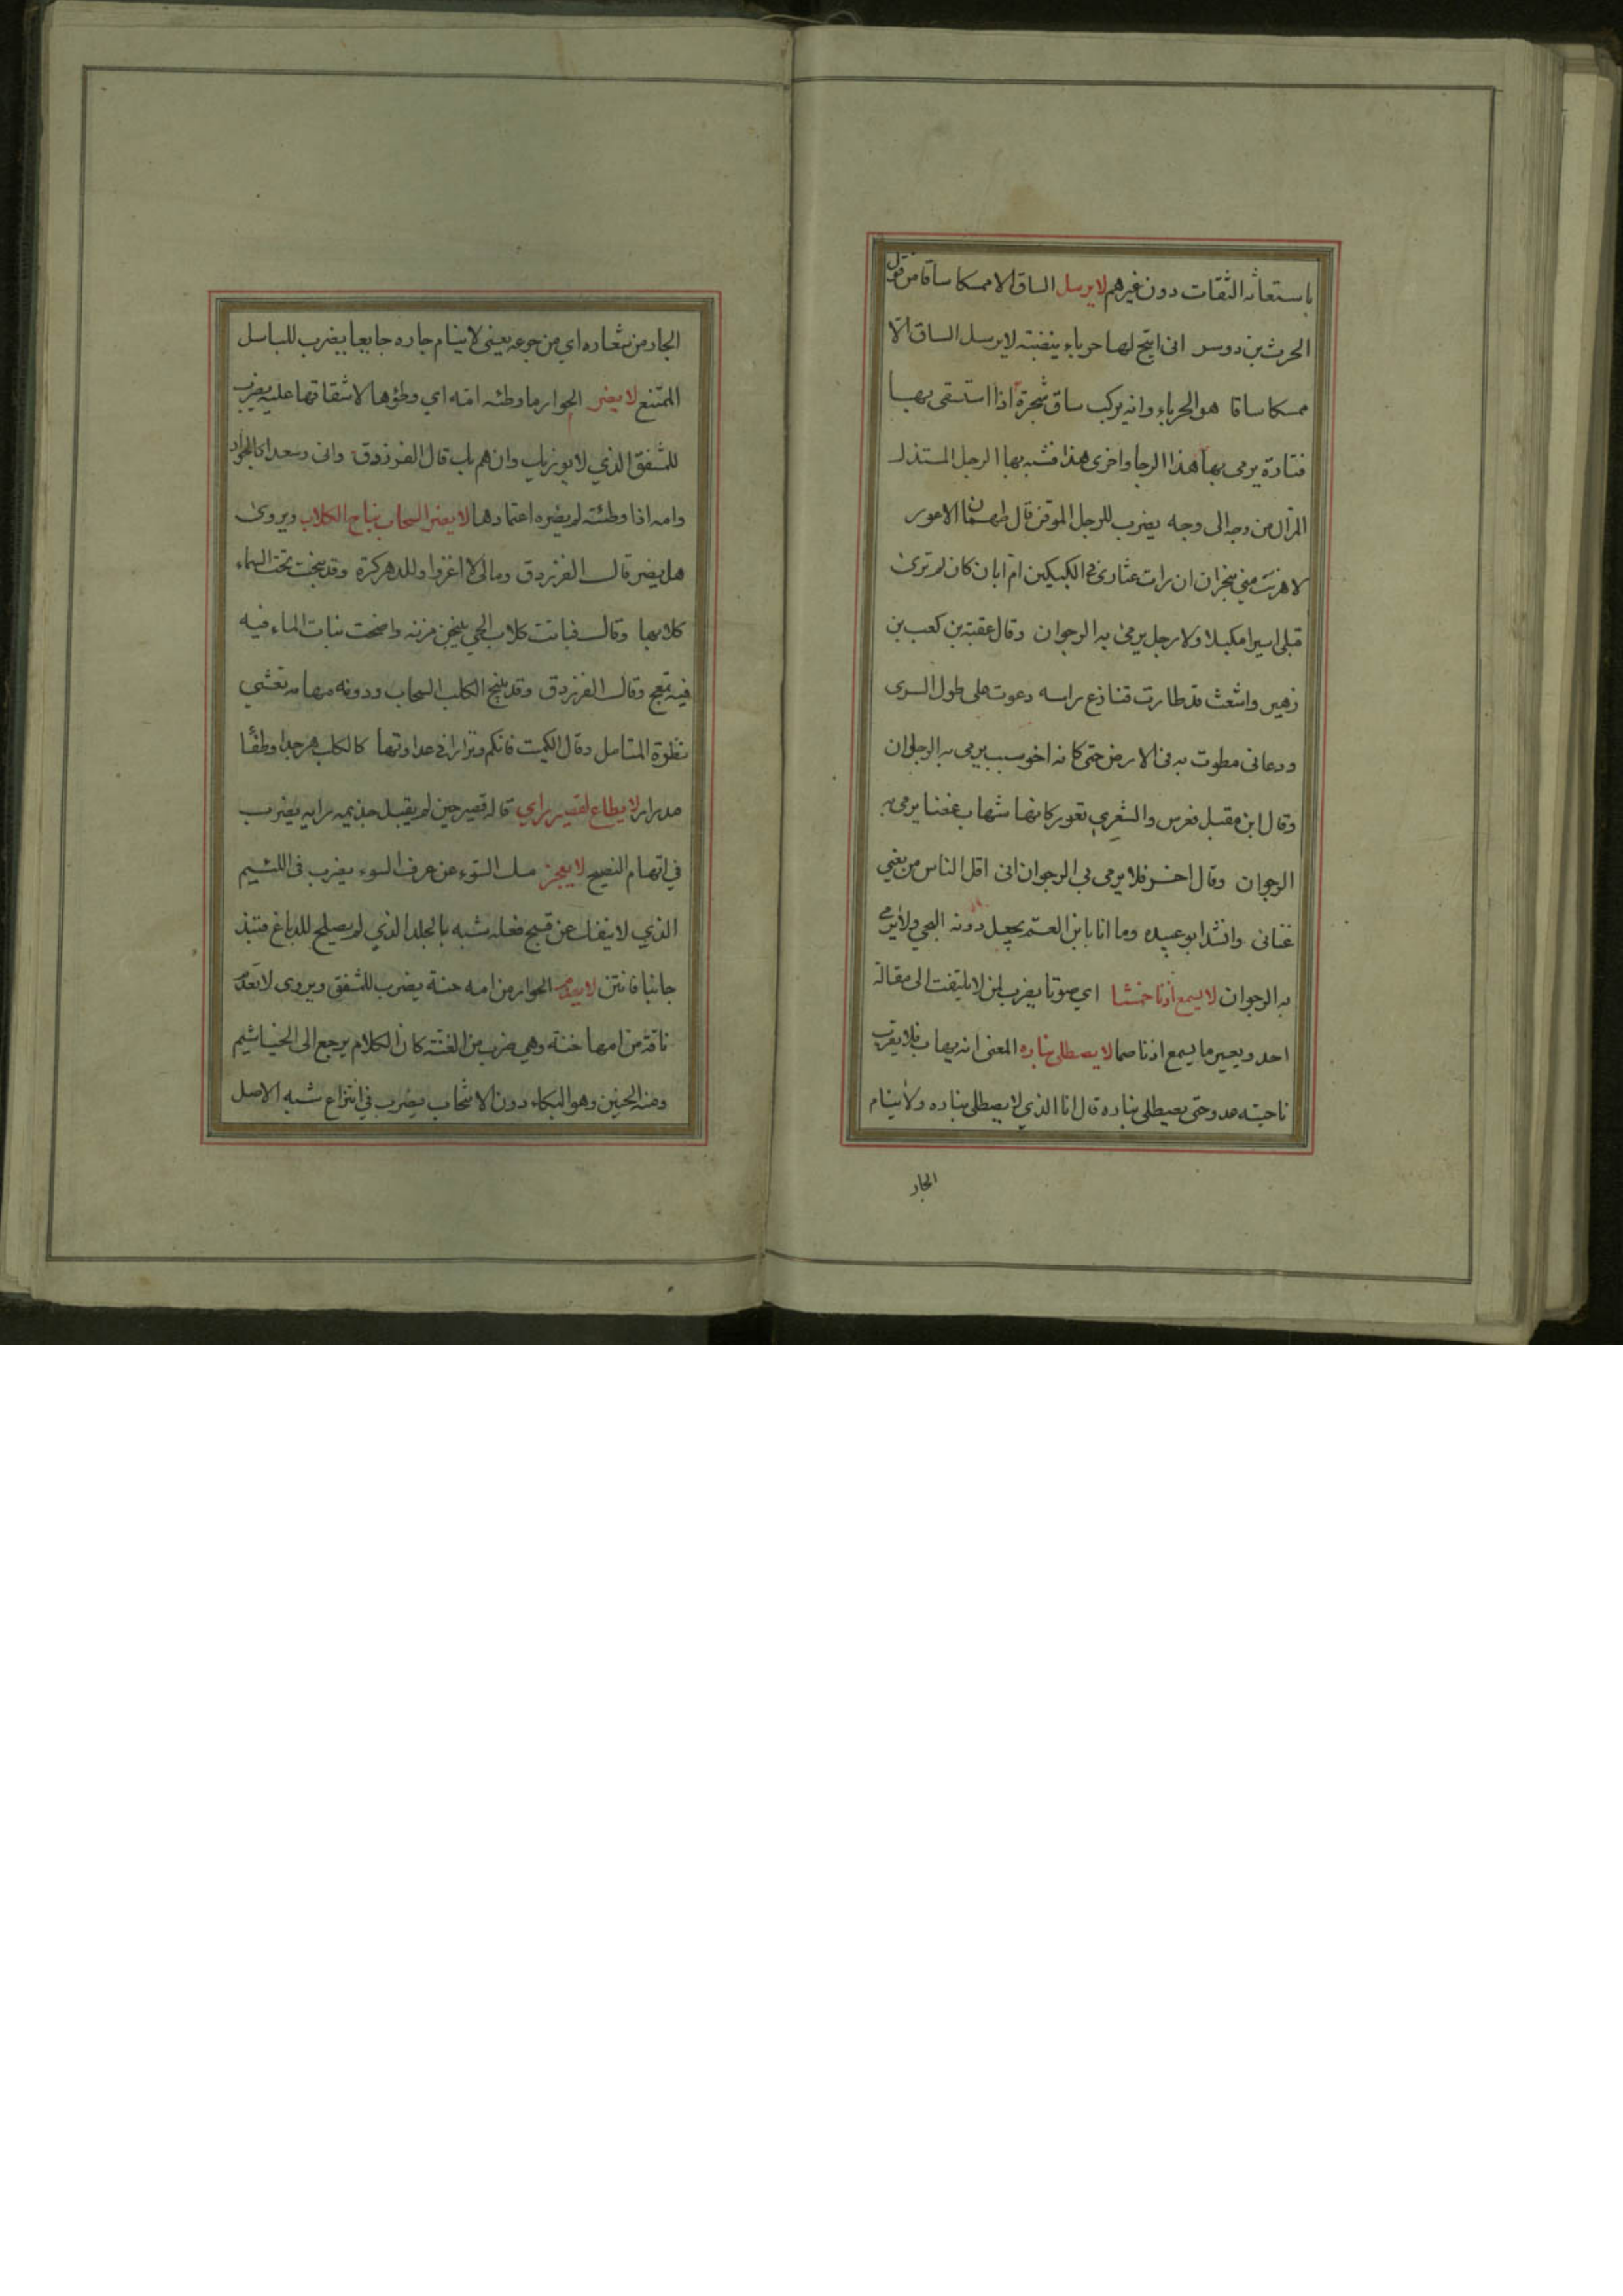 باستعانه الثقات دون غيرهم لا يرسل الساق الا ممسكا ساقا من قول
الحرث بن دوسر انى اتيح لها حرباء ينضبته لا يرسل الساق الا
ممسكا ساقا هو الحرباء وانه يركب ساق شجرة اذا استسقى بهـا
فتارة يرمى بها هذا الرجا واخرى هذا فشبه بها الرجل المستذل
من وجه الى وجه يضرب للرجل قال طهمان الاعور
لا هزئت منى بنجران ان رات عثارى فى الكبيلين ام ابان كان لم ترى
قبلى اسيرا مكبلا ولا رجل يرمى به الرجوان وقال عقبة بن كعب بن
زهير واشعث قد طارت قنازع راسه دعوت على طول السرى
ودعانى مطوت به فى الارض حتى كانه اخو سبب يرمى به الرجوان
وقال ابن مقبل فعرس والشعرى تغور كانها شهاب غضا يرمى به
الرجوان وقال اخر فلا يرمى بى الرجوان انى اقل الناس من يغني
غنائى وانشد ابو عبيده وما انا بابن العم يجعل دونه ولا يرمى
به الرجوان لا يسمع اذنا خمشا اي صوتا يضرب لمن لا يلتفت الى مقالة
احد ويعير ما يسمع اذنا صما لا يصطلى بناره المعنى انه يهاب فلا يقرب
ناحيته عدو حتى يصطلى بناره قال انا الذي لا يصطلى بناره ولا ينام
الجار
الجار من سعاره اي من جوعه يعنى لا ينام جاره جايعا يضرب للباسل
الممتنع لا يضر الحوار ما وطئه امه اي وطؤها لاشفاقها عليه يضرب
للشفق الذي لا وان قال الفرزدق وانى وسعدا كالحوار
وامه اذا وطئته لم يضره اعتمادها لا يضر السحاب نباح الكلاب ويروى
هل يضر قال الفرزدق ومالى لا اغزوا وللدهر كرة وقد نبحت تحت السماء
كلابها وقال فباتت كلاب الحي ينبحن مزنه واضحت بنات الماء فيه
فيه تمعج وقال الفرزدق وقد ينبح الكلب السحاب ودونه مهامه تعشي
نظرة المتامل وقال الكميت فانكم ونزارا فى عداوتها كالكلب هر جدا وطفا
مدرار لا يطاع لقصير راي قاله قصير حين لم يقبل جذيمه رايه يضرب
في اتهام النصيح لا يعجز مسك السوء عن عرف السوء يضرب فى اللئيم
الذي لا ينفك عن قبيح فعله شبه بالجلد الذي لم يصلح للدباغ فنبذ
جانبا فانتن لا يعدم الحوار من امه حنة يضرب للشفق ويروى لا تعدم
ناقة من امها خنة وهي ضرب من الغنه كان الكلام يرجع الى الخياشيم
ومنه الحنين وهو البكاء دون الانتحاب يضرب في انتزاع شبه الاصل